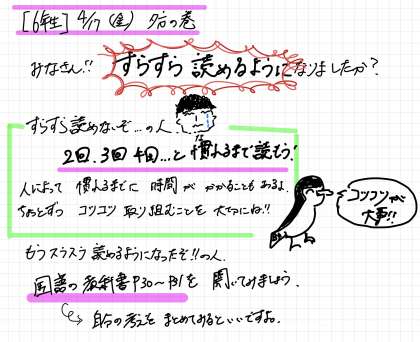 [6年生] 4/17 (金) 夕方の巻
みなさん!! すらすら読めるようになりましたか?
すらすら読めないぞ…の人
2回、3回 4回…と慣れるまで読もう!
な
人によって 慣れるまでに 時間が かかることもあるよ、
ちょっとずつ コツコツ 取り組むことを 大切にね!!
コツコツが
大事!!
もうスラスラ 読めるようになったぞ!!の人、
国語の教科書P30〜P31を 開いてみましょう、
自分の考えを まとめてみるといいですよ。